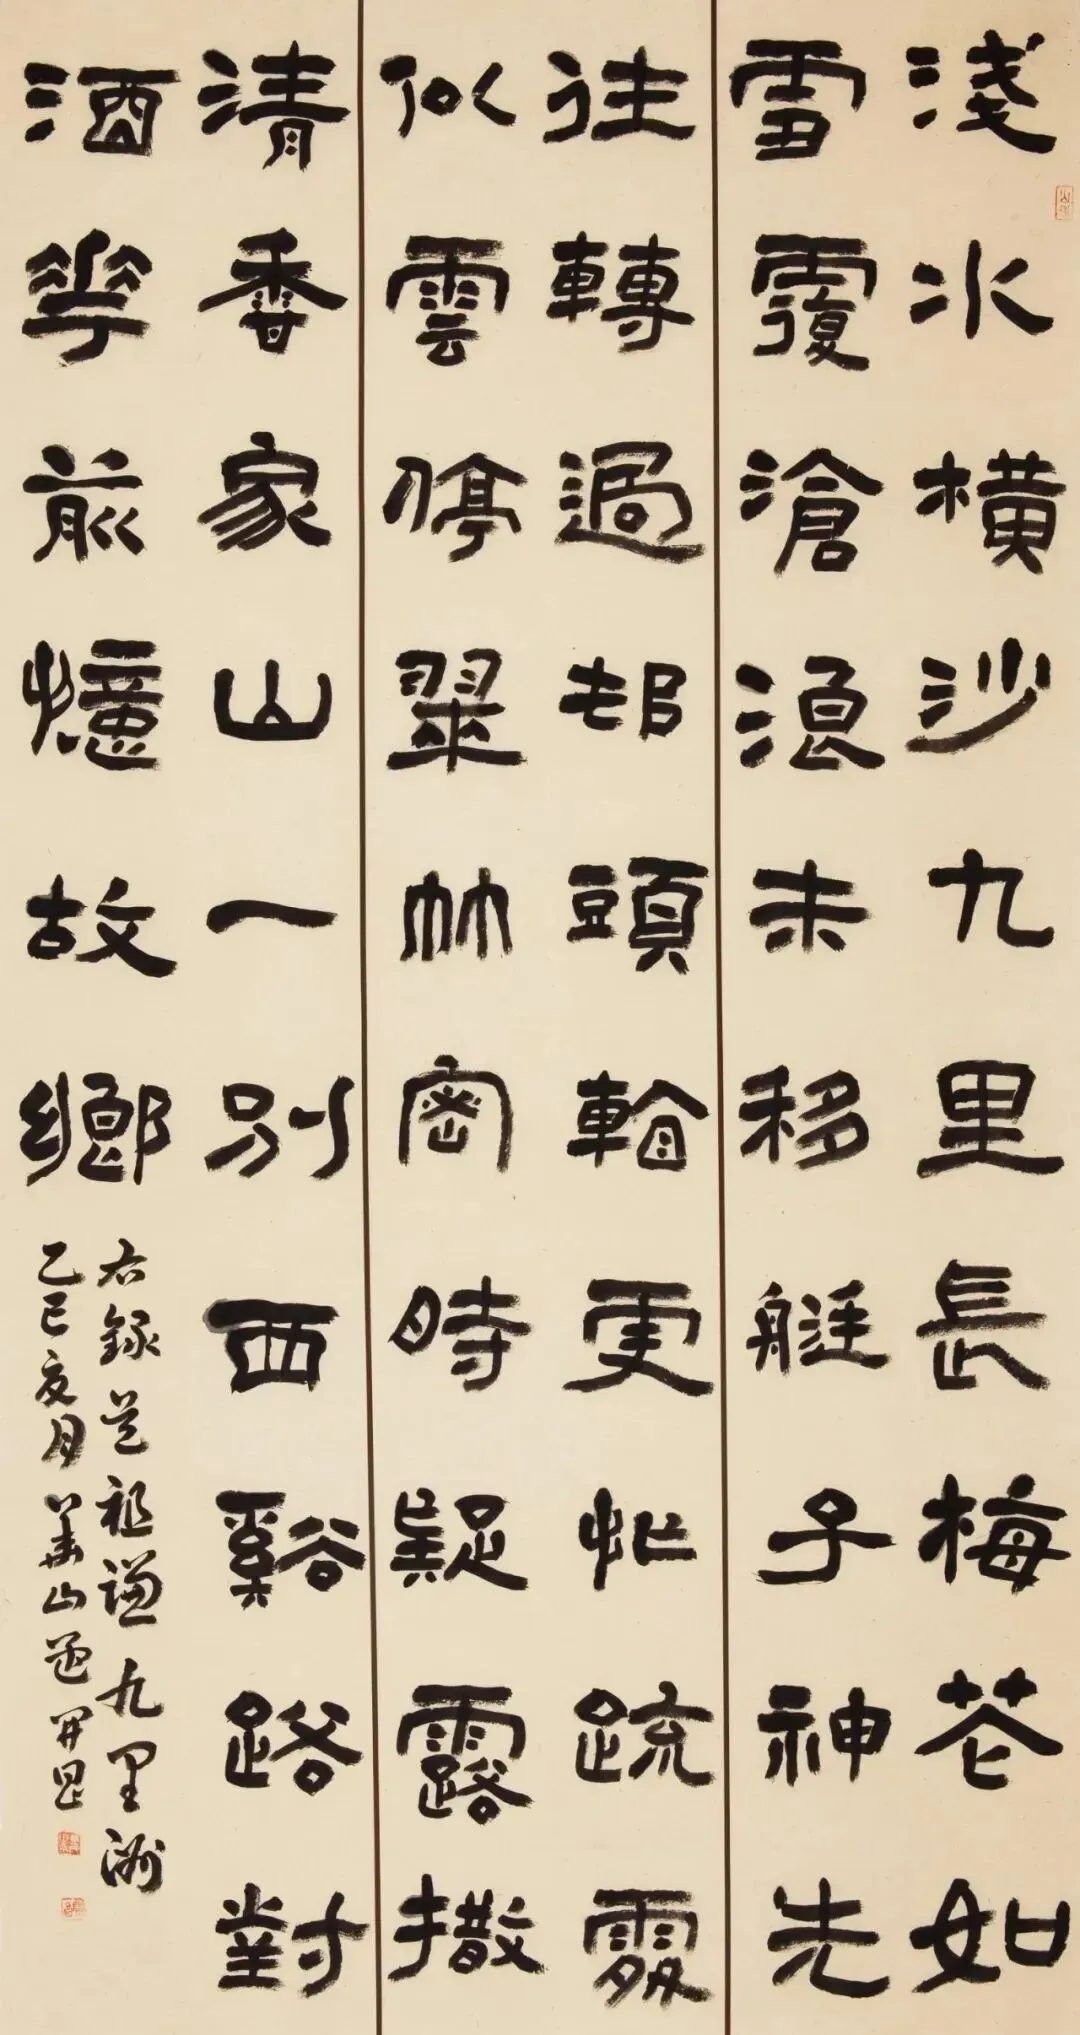 淺水橫沙九里長梅花如
雪覆滄浪未移艇子神先
往轉過邨頭更忙疏處
似雲停翠竹密時疑露撒
清香家山一別西谿路對
酒華前憶故鄉
右錄祖謙九里洲
乙巳月蕭山